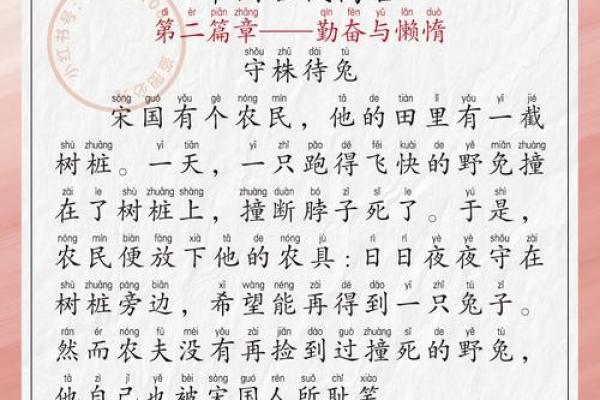 dì èr piān zhāng qín fèn yǔ lǎn duò
第二篇章——勤奋与懒惰
shǒu zhū dài tù
守株待兔
sòng guó yǒu gè nóng mín tā de tián lǐ yǒu yī jié
宋国有个农民，他的田里有一截
shù zhuāng yī tiān yī zhī pǎo dé fēi kuài de yě miǎn zhuàng
树桩。一天，一只跑得飞快的野免撞
zài le shù zhuāng shàng zhuàng duàn bó zǐ sǐ le yú shì
在了树桩上，撞断脖子死了。于是，
nóng mín biàn fàng xià tā de nóng jù rì rì yè yè shǒu zài
农民便放下他的农具:日日夜夜守在
shù zhuāng páng biān xī wàng néng zài dé dào yī zhī tù zǐ
树桩旁边，希望能再得到一只兔子。
rán ér nóng fū méi yǒu zài jiǎn dào guò zhuàng sǐ de yě tù
然而农夫没有再捡到过撞死的野兔，
tā zì jǐ yě bèi sòng guó rén suǒ chǐ xiào
他自己也被宋国人所耻笑
小红书号: